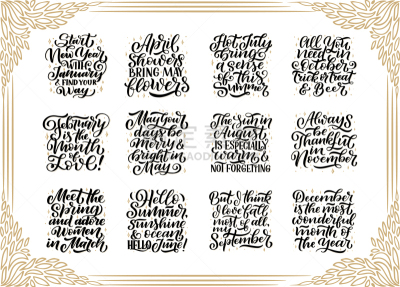 Start
New Year
with
January
& FIND YOUR
Way
April
Showers
BRING MAY
flowers
Hot July
bring a
sense
of this
SUMMER
All You
need in
October
Trick or Treat
& Beer
February
is the
Month
of
Love!
May Your
days be
Merry &
bright in
May
The Sun in
August
IS ESPECIALLY
warm &
NOT FORGETTING
Always
be
Thankful
in
November
Meet the
Spring
and adore
Women
in March
Hello
Summer,
Sunshine
& ocean
HELLO June!
But I think
I love fall
most of all
must
September
December
is the most
wonderful
month of
The Year